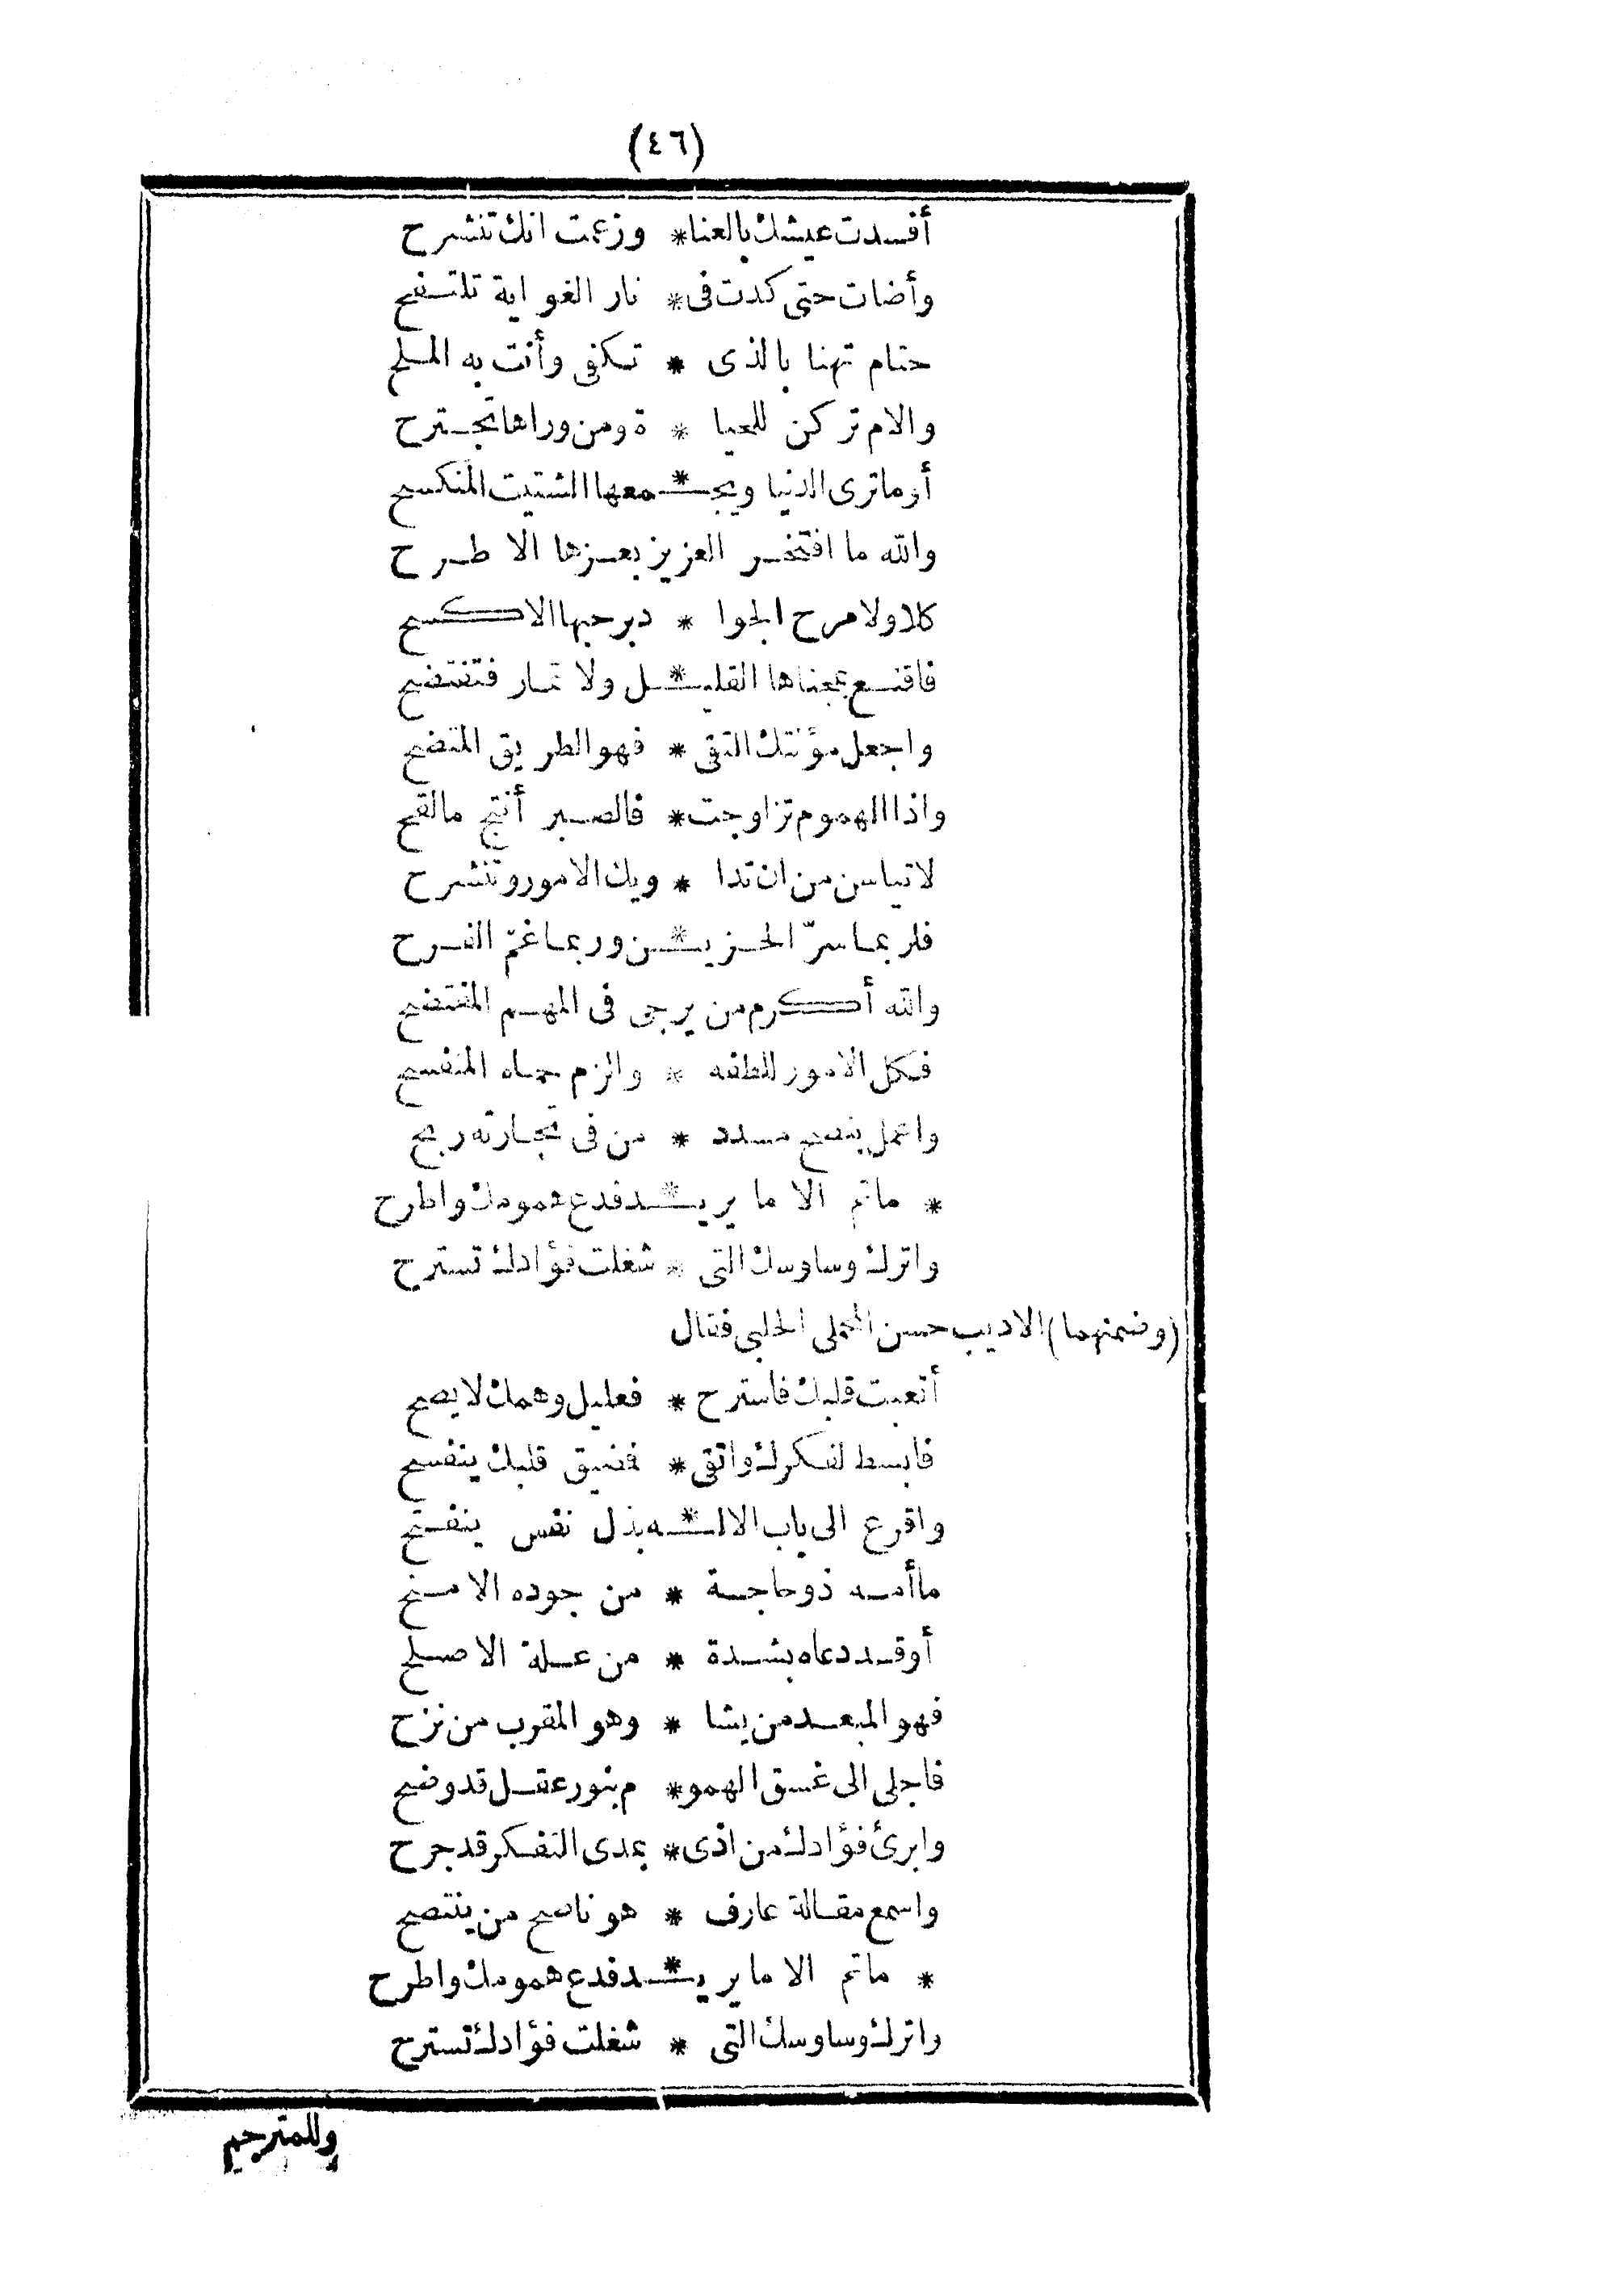 (٤٦)
أفسدت عيشك بالعنا * وزعمت انك تنشرح
وأضات حتى كدت فى * نار الغواية تلتفح
حتام تهنا بالذى * تكفى وأنت به الملح
والام تركن للحيا * ة ومن وراها تجترح
أو ما ترى الدنيا ويجـ * ـمعها الشتيت المنكسح
والله ما افتخر العزيز بعزها الا طرح
كلا ولا مرح الجوا * د برحبها الا كسح
فاقنع بمعناها القليـ * ـل ولا تمار فتفتضح
واجعل مؤنتك التقى * فهو الطريق المتضح
واذا الهموم تزاوجت * فالصبر أنتج مالقح
لا تياسن من ان تدا * ويك الامور وتنشرح
فلر بما سرّ الحزيـ * ـن وربما غمّ الفرح
والله أكرم من يرجى فى المهم المفتضح
فكل الامور للطفه * والزم حماه المنفسح
واعمل بنصح مسدد * من فى تجارته ربح
* ماثم الا ما يريـ * ـد فدع همومك واطرح
واترك وساوسك التى * شغلت فؤادك تسترح
(وضمنهما) الاديب حسن الحلبى فقال
أتعبت قلبك فاسترح * فعليل وهمك لا يصح
فابسط لفكرك واتقى * فضيق قلبك ينفسح
واقرع الى باب الالـ * ـه بذل نفس ينفتح
ما أمه ذو حاجة * من جوده الا منح
أو قد دعاه بشدة * من علة الا صلح
فهو المبعد من يشا * وهو المقرب من نزح
فاجلى الى غسق الهمو * م بنور عقل قد وضح
وابرئ فؤادك من اذى * بمدى التفكر قد جرح
واسمع مقالة عارف * هو ناصح من ينتصح
* ماثم الا ما يريـ * ـد فدع همومك واطرح
واترك وساوسك التى * شغلت فؤادك تسترح
وللمترجم